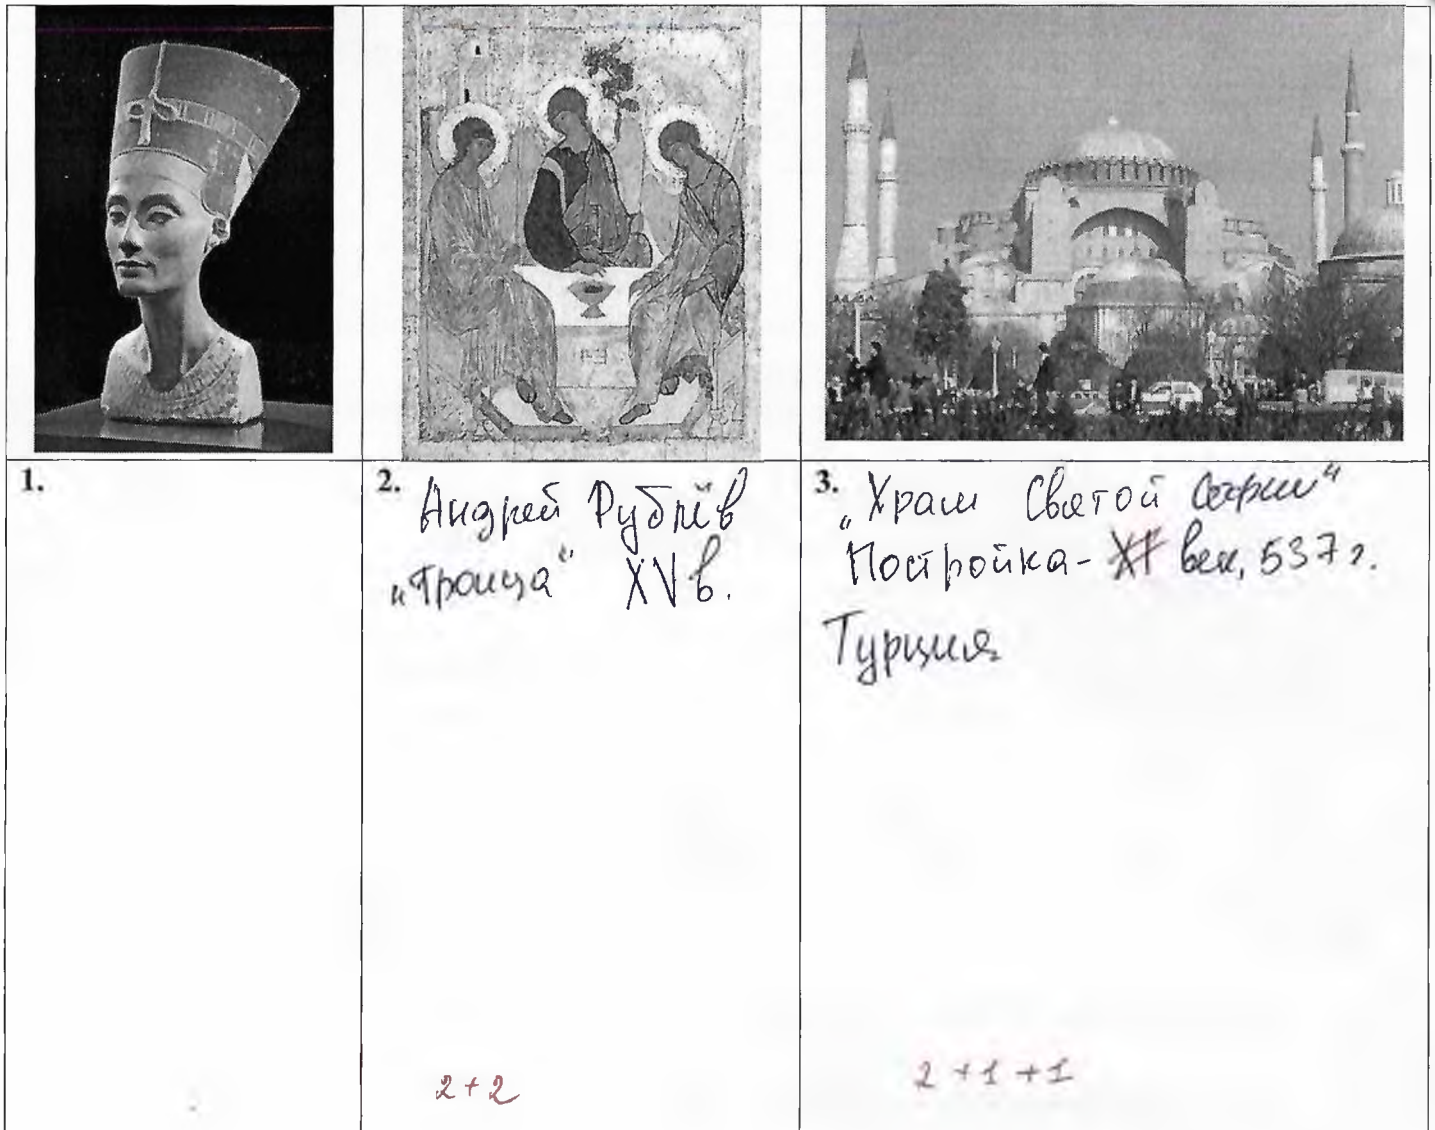 1.
2. Андрей Рублёв
„Троица“ XV в.
2 + 2
3. „Храм Святой Софии“
Постройка - век, 537 г.
Турция
2 + 1 + 1